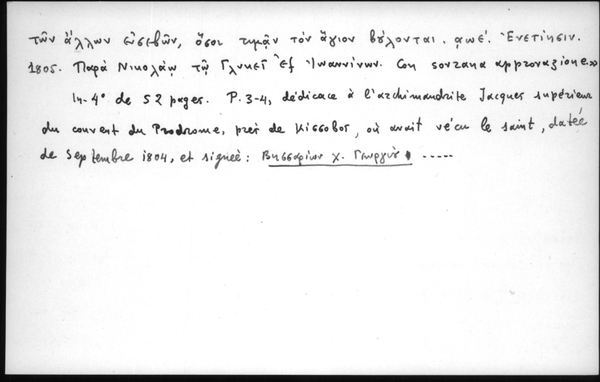 τῶν ἄλλων εὐσεβῶν, ὅσοι τιμᾷν τὸν ἅγιον βούλονται. ͵αωε΄. Ἐνετίησιν.
1805. Παρὰ Νικολάῳ τῷ Γλυκεῖ ἐξ Ἰωαννίνων. Con sovrana approvazione»
In-4° de 52 pages. P. 3-4, dédicace à l'archimandrite Jacques supérieur
du couvent du Prodrome, près de Κίσσαβος, où avait vécu le saint, datée
de Septembre 1804, et signée: Βησσαρίων χ. Γεωργίου .....